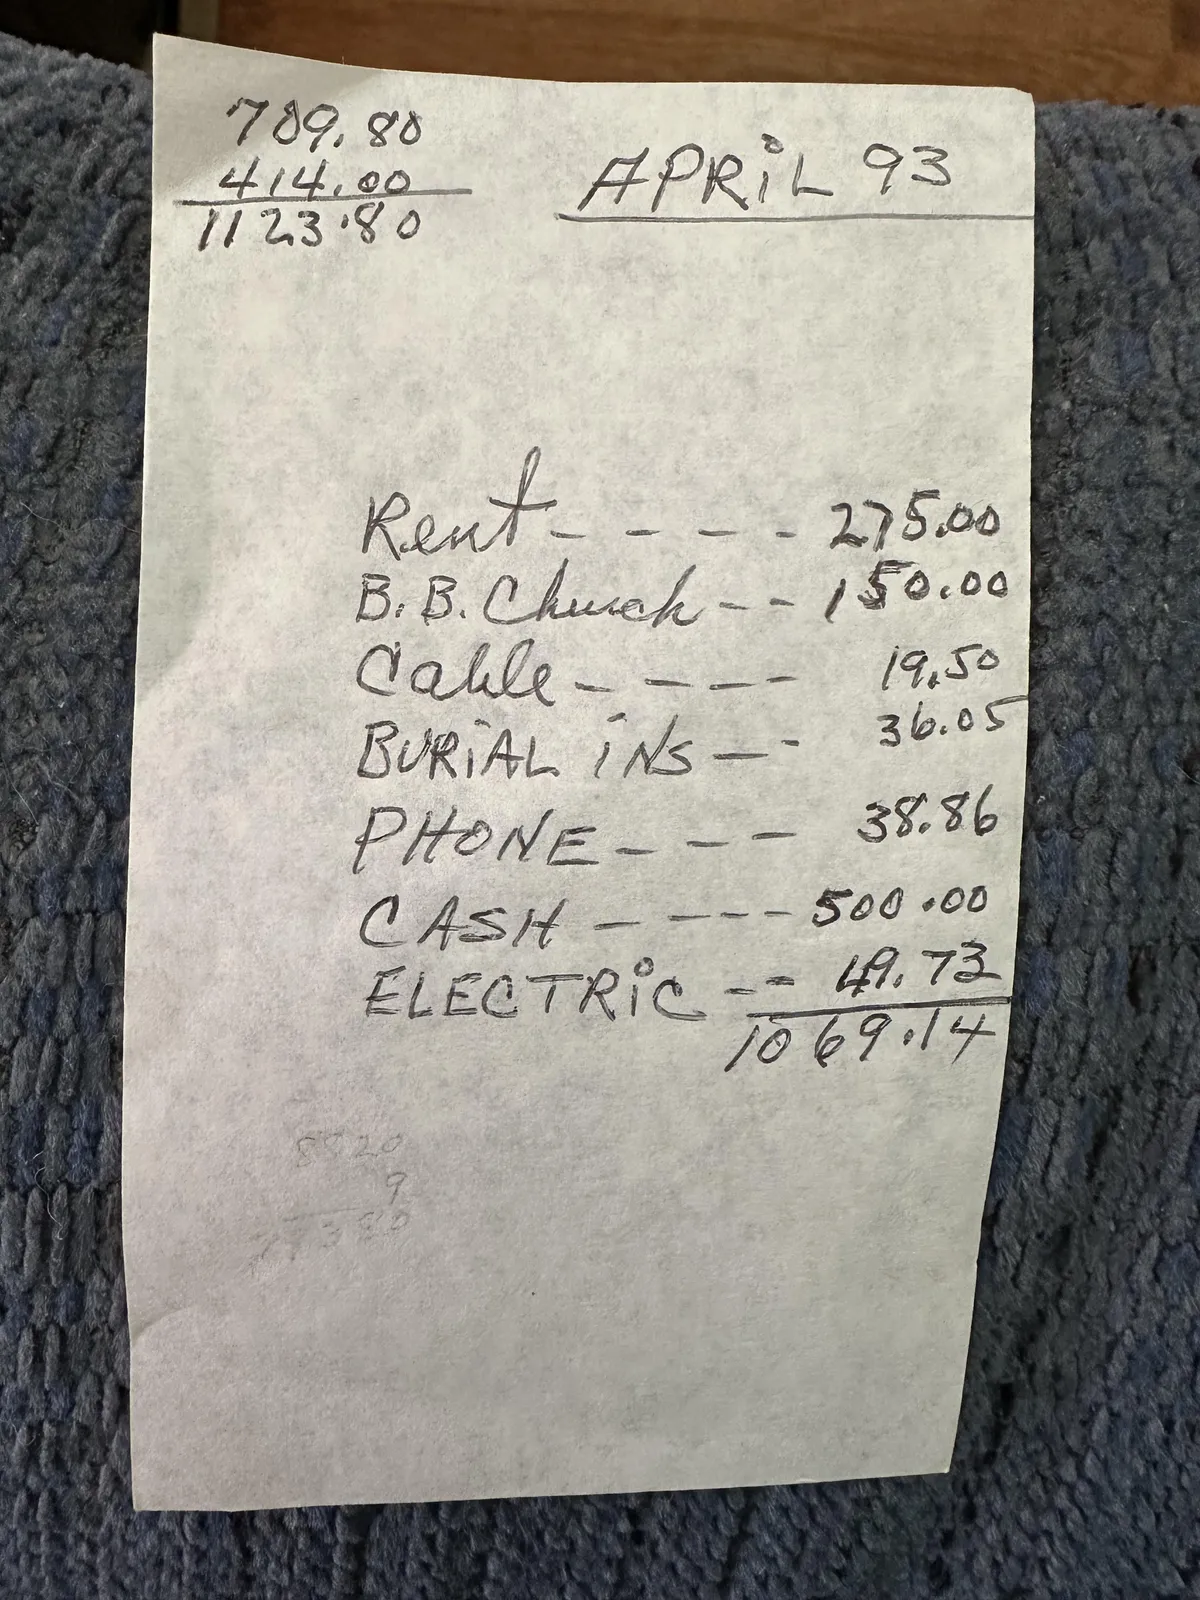 709.80
414.00
1123.80
APRiL 93
Rent - - - - 275.00
B.B. Church - - 150.00
Cable - - - - 19.50
BURiAL iNS - - 36.05
PHONE - - - 38.86
CASH - - - - 500.00
ELECTRiC - - 49.73
1069.14
9